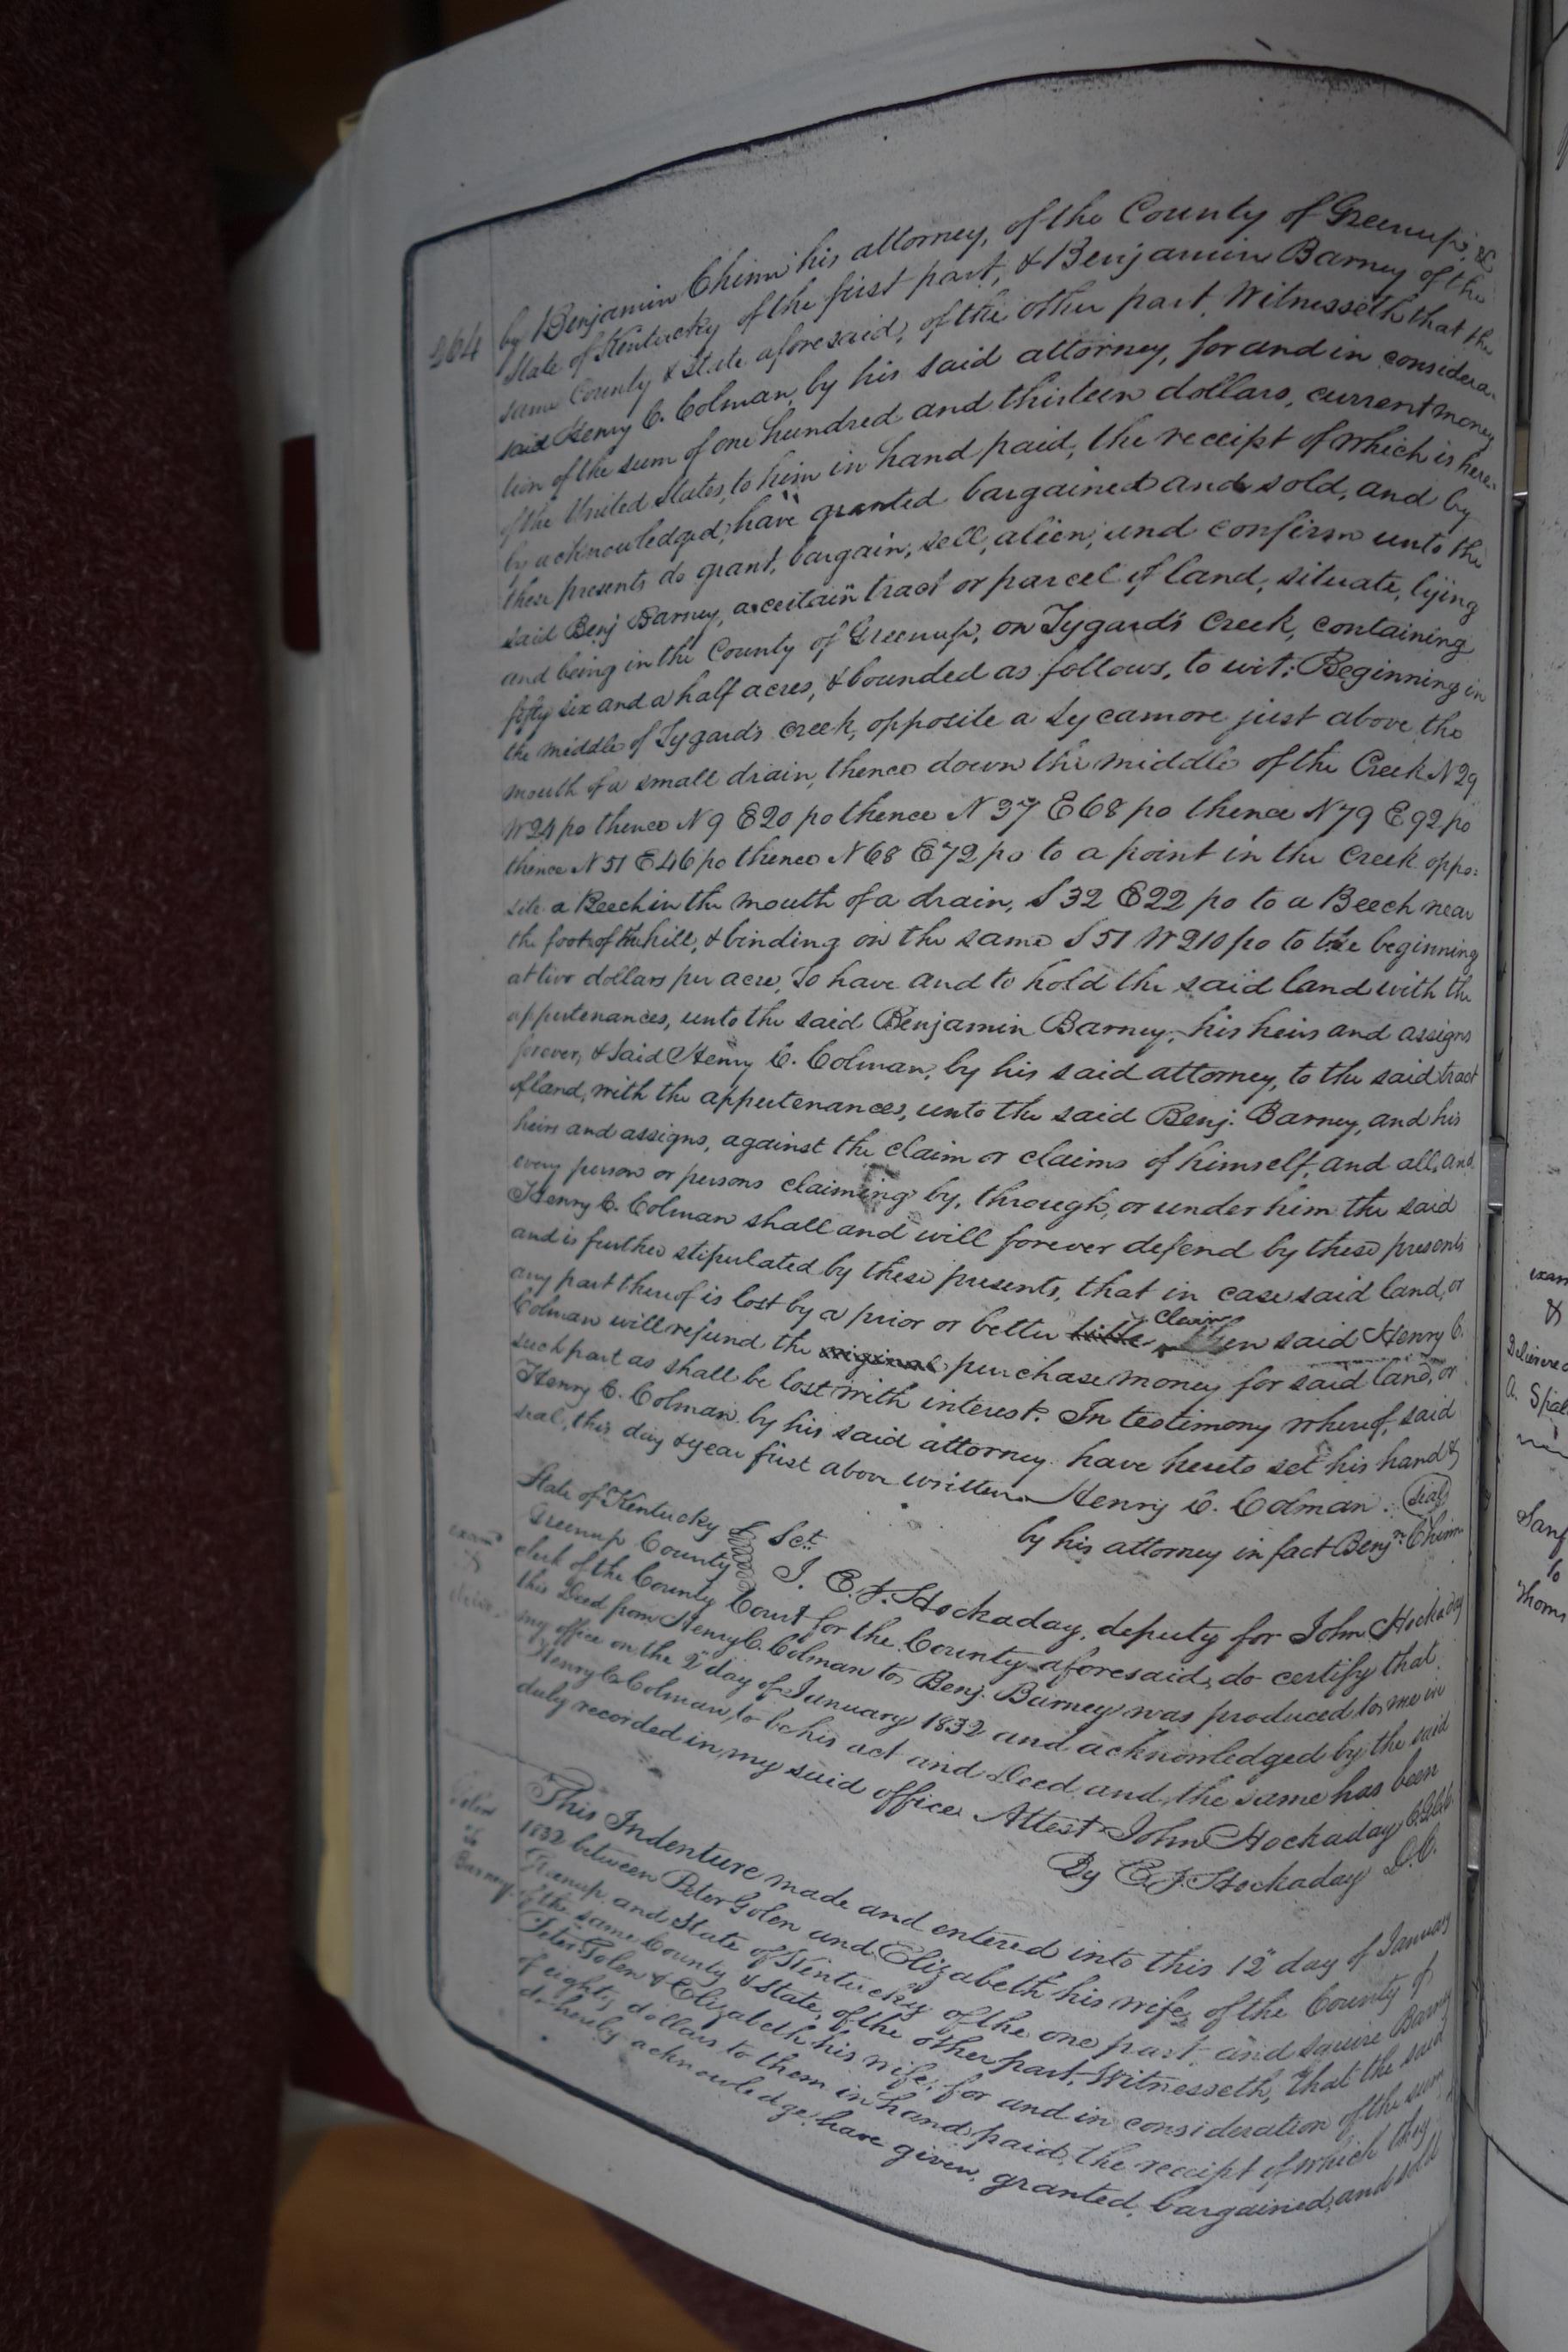 264
by Benjamin Chinn his attorney, of the County of Greenup, &
State of Kentucky of the first part, & Benjamin Barney of the
same County & State aforesaid, of the other part, Witnesseth that the
said Henry C. Colman, by his said attorney, for and in considera-
tion of the sum of one hundred and thirteen dollars, current money
of the United States, to him in hand paid, the receipt of which is here-
by acknowledged, have granted bargained and sold, and by
these presents do grant, bargain, sell, alien, and confirm unto the
said Benj Barney, a certain tract or parcel of land, situate, lying
and being in the County of Greenup, on Tygard's Creek, containing
fifty six and a half acres, & bounded as follows, to wit: Beginning in
the middle of Tygard's creek, opposite a Sycamore just above the
mouth of a small drain, thence down the middle of the Creek N 29
W 24 po thence N 9 E 20 po thence N 37 E 68 po thence N 79 E 92 po
thence N 51 E 46 po thence N 68 E 72 po to a point in the Creek oppo-
site a Beech in the mouth of a drain, S 32 E 22 po to a Beech near
the foot of the hill, & binding on the same S 51 W 210 po to the beginning
at two dollars per acre, To have and to hold the said land with the
appertenances, unto the said Benjamin Barney, his heirs and assigns
forever, & said Henry C. Colman, by his said attorney, to the said tract
of land, with the appertenances, unto the said Benj. Barney, and his
heirs and assigns, against the claim or claims of himself, and all, and
every person or persons claiming by, through, or under him the said
Henry C. Colman shall and will forever defend by these presents
and is further stipulated by these presents, that in case said land, or
any part thereof is lost by a prior or better title claim then said Henry C.
Colman will refund the original purchase money for said land, or
such part as shall be lost with interest. In testimony whereof, said
Henry C. Colman by his said attorney have hereto set his hand &
seal, this day & year first above written. Henry C. Colman. Seal
by his attorney in fact Benjn Chinn
State of Kentucky Sct.
Greenup County I, E. J. Hockaday, deputy for John Hockaday
clerk of the County Court for the County aforesaid, do certify that
this Deed from Henry C. Colman to Benj. Barney was produced to me in
my office on the 2d day of January 1832 and acknowledged by the said
Henry C. Colman, to be his act and Deed and, the same has been
duly recorded in my said office. Attest John Hockaday
By E J Hockaday D.C.
This Indenture made and entered into this 12" day of January
1832 between Peter Golen and Elizabeth his wife, of the County of
Greenup and State of Kentucky of the one part, and Squire Barney
of the same County & State, of the other part, Witnesseth, that the said
Peter Golen & Elizabeth his wife, for and in consideration of the sum
of eighty dollars to them in hand paid, the receipt of which they
do hereby acknowledge, have given, granted, bargained, and sold
Golen
to
Barney
exam
&
Delivered
a. Spal
Sanf
to
Thom